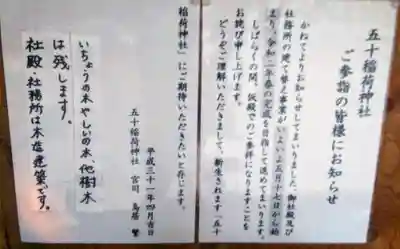 五十稲荷神社
ご参詣の皆様にお知らせ
かねてよりお知らせしてまいりました、御社殿及び
社務所の建て替え事業がいよいよ五月十七日から始
まり、令和二年春の完成を目指して進めてまいります。
しばらくの間、仮殿でのご参拝になりますことを
お詫び申し上げます。
どうぞご理解いただきまして、新生されます「五十
稲荷神社」にご期待いただきたいと存じます。
平成三十一年四月吉日
五十稲荷神社 宮司 鳥居 繁
いちょうの木やしいの木、他樹木
は残します。
社殿・社務所は木造建築です。